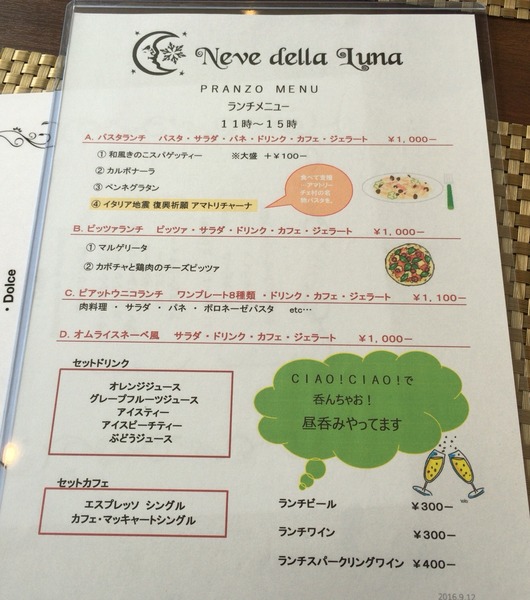 Neve della Luna
PRANZO MENU
ランチメニュー
11時～15時
A. パスタランチ パスタ・サラダ・パネ・ドリンク・カフェ・ジェラート ￥1,000－
① 和風きのこスパゲッティー ※大盛 ＋￥100－
② カルボナーラ
③ ペンネグラタン
④ イタリア地震 復興祈願 アマトリチャーナ
食べて支援
B. ピッツァランチ ピッツァ・サラダ・ドリンク・カフェ・ジェラート ￥1,000－
① マルゲリータ
② カボチャと鶏肉のチーズピッツァ
C. ピアットウニコランチ ワンプレート8種類 ・ドリンク・カフェ・ジェラート ￥1,100－
肉料理 ・ サラダ ・ パネ ・ ボロネーゼパスタ etc…
D. オムライスネーベ風 サラダ・ドリンク・カフェ・ジェラート ￥1,000－
セットドリンク
オレンジジュース
グレープフルーツジュース
アイスティー
アイスピーチティー
ぶどうジュース
CIAO！CIAO！で
呑んちゃお！
昼呑みやってます
セットカフェ
エスプレッソ シングル
カフェ・マッキャートシングル
ランチビール ￥300－
ランチワイン ￥300－
ランチスパークリングワイン ￥400－
2016.9.12
・Dolce